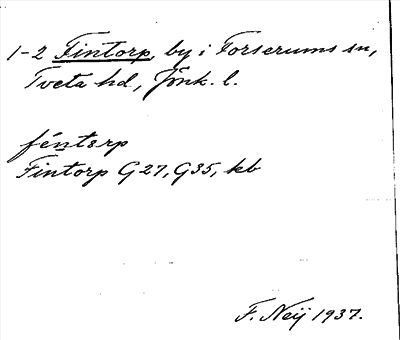 1-2 Fintorp, by i Forserums sn,
Tveta hd, Jönk. l.
féntɛrp
Fintorp G27, G35, kb
F. Neij 1937.